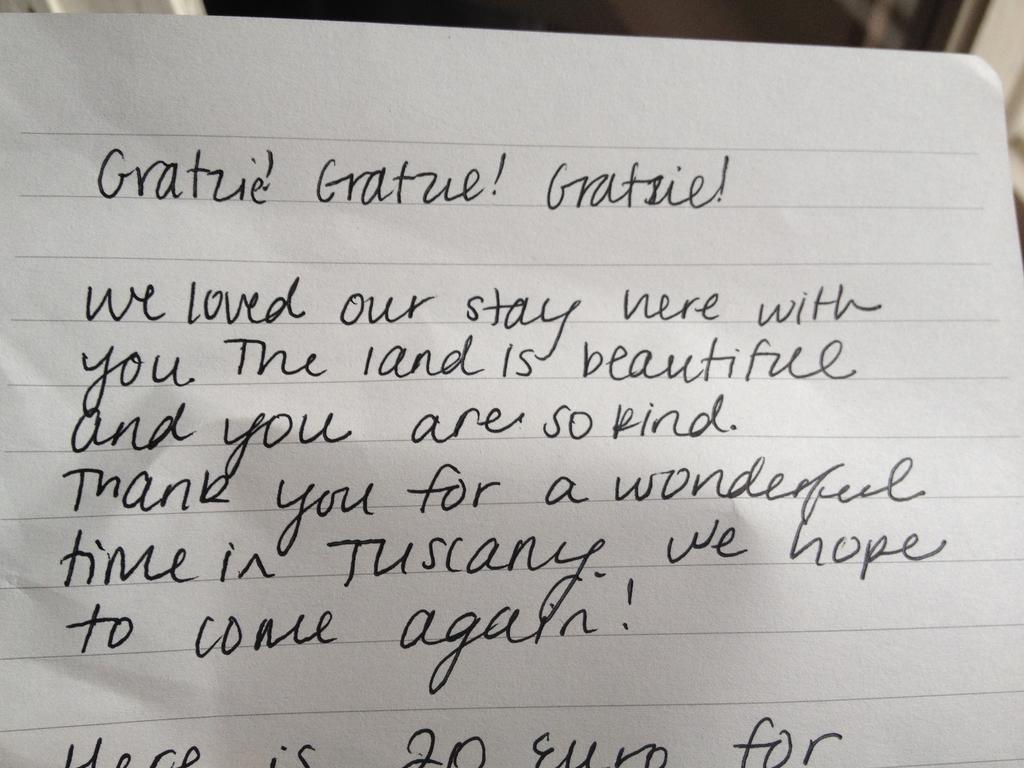 Gratzie! Gratzie! Gratzie!
We loved our stay here with
you. The land is beautiful
and you are so kind.
Thank you for a wonderful
time in Tuscany. We hope
to come again!
Here is 20 Euro for